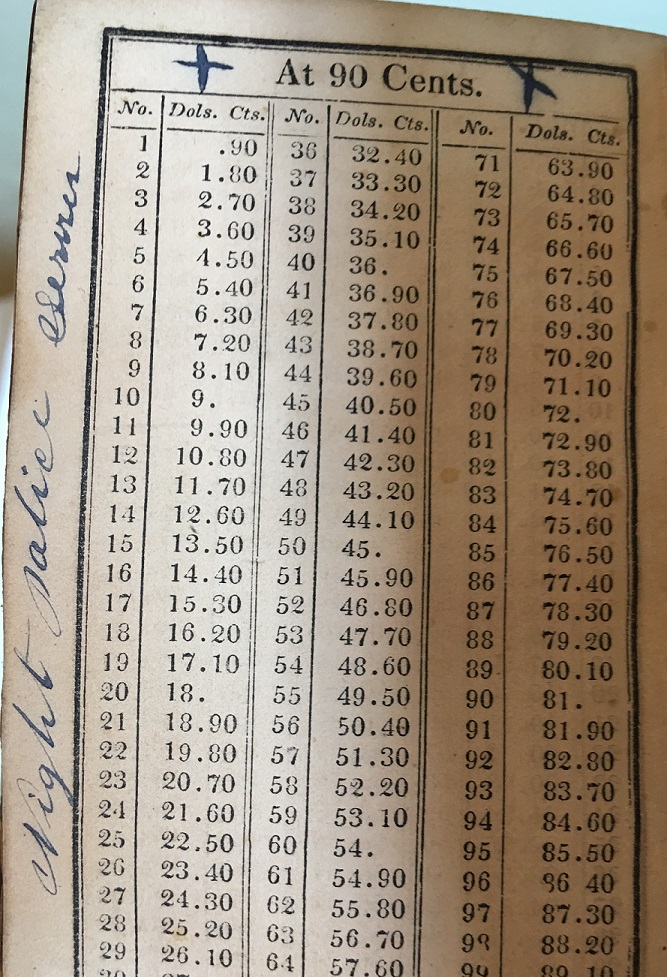 At 90 Cents.
No. Dols. Cts. No. Dols. Cts. No. Dols. Cts.
1 .90 36 32.40 71 63.90
2 1.80 37 33.30 72 64.80
3 2.70 38 34.20 73 65.70
4 3.60 39 35.10 74 66.60
5 4.50 40 36. 75 67.50
6 5.40 41 36.90 76 68.40
7 6.30 42 37.80 77 69.30
8 7.20 43 38.70 78 70.20
9 8.10 44 39.60 79 71.10
10 9. 45 40.50 80 72.
11 9.90 46 41.40 81 72.90
12 10.80 47 42.30 82 73.80
13 11.70 48 43.20 83 74.70
14 12.60 49 44.10 84 75.60
15 13.50 50 45. 85 76.50
16 14.40 51 45.90 86 77.40
17 15.30 52 46.80 87 78.30
18 16.20 53 47.70 88 79.20
19 17.10 54 48.60 89 80.10
20 18. 55 49.50 90 81.
21 18.90 56 50.40 91 81.90
22 19.80 57 51.30 92 82.80
23 20.70 58 52.20 93 83.70
24 21.60 59 53.10 94 84.60
25 22.50 60 54. 95 85.50
26 23.40 61 54.90 96 86 40
27 24.30 62 55.80 97 87.30
28 25.20 63 56.70 98 88.20
29 26.10 64 57.60
Night Police